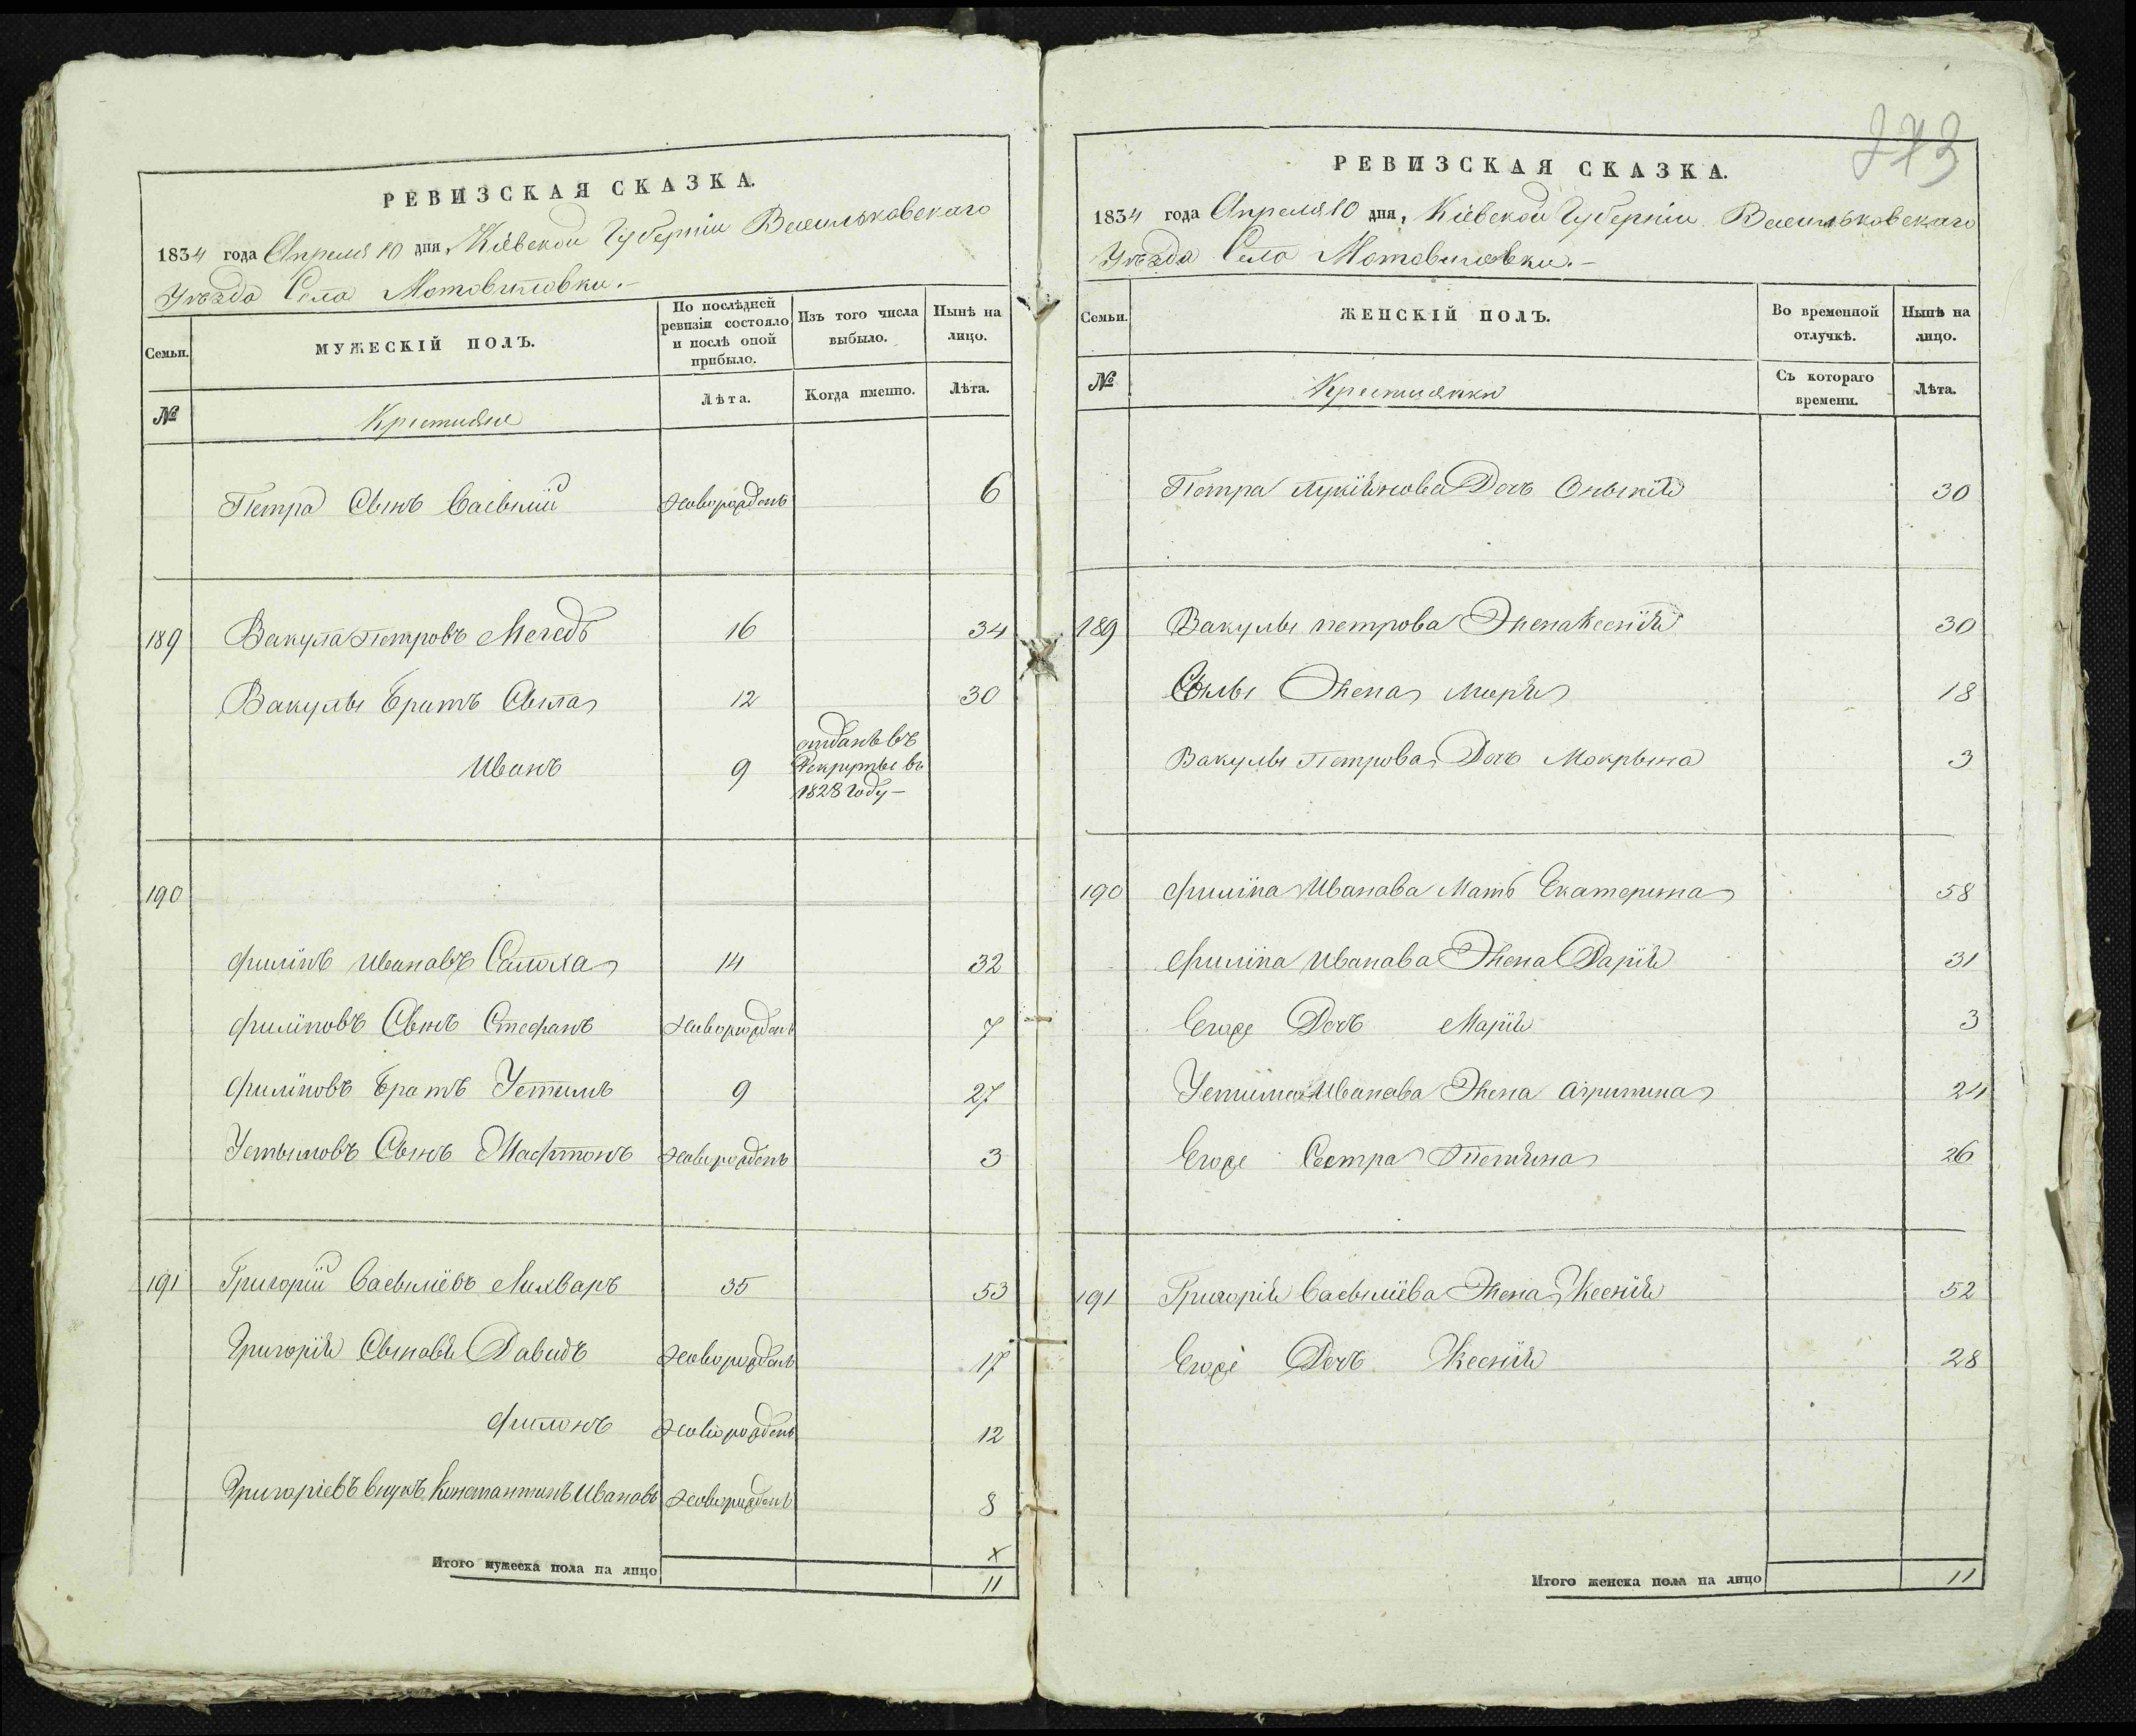 РЕВИЗСКАЯ СКАЗКА.
1834 года Апреля 10 дня, Кіевской Губерніи Васильковскаго
Уѣзда Села Мотовиловки.
Семьи.
МУЖЕСКІЙ ПОЛЪ.
По послѣдней ревизіи состояло и послѣ оной прибыло.
Изъ того числа выбыло.
Нынѣ на лицо.
№
Крестияне
Лѣта.
Когда именно.
Лѣта.
Петра Сынъ Васылий новорожденъ 6
189 Вакула Петровъ Мегедь 16 34
Вакулы Братъ Сыла 12 30
Иванъ 9 отданъ въ Рекруты въ 1828 году
190
Филіпъ Ивановъ Солоха 14 32
Филіповъ Сынъ Стефанъ новорожденъ 7
Филіповъ Братъ Устимъ 9 27
Устымовъ Сынъ новорожденъ 3
191 Григорій Васыліевъ Лихваръ 35 53
Григорія Сыновья Давидъ новорожденъ 17
Филонъ новорожденъ 12
Григоріевъ внукъ Константинъ Ивановъ новорожденъ 8
Х
Итого мужеска пола на лицо 11
273
РЕВИЗСКАЯ СКАЗКА.
1834 года Апреля 10 дня, Кіевской Губерніи Васильковскаго
Уѣзда Села Мотовиловки.
Семьи.
ЖЕНСКІЙ ПОЛЪ.
Во временной отлучкѣ.
Нынѣ на лицо.
№
Крестиянки
Съ котораго времени.
Лѣта.
Петра Лукіянова Дочь 30
189 Вакулы петрова Жена Ксенія 30
Сылы Жена Марія 18
Вакулы Петрова Дочь Мокрына 3
190 Филіпа Иванова Мать Екатерина 58
Филіпа Иванова Жена Дарія 31
Егоже Дочь Марія 3
Устима Иванова Жена Агрипина 24
Егоже Сестра 26
191 Григорія Васыліева Жена Ксенія 52
Егоже Дочь Ксенія 28
Итого женска пола на лицо 11